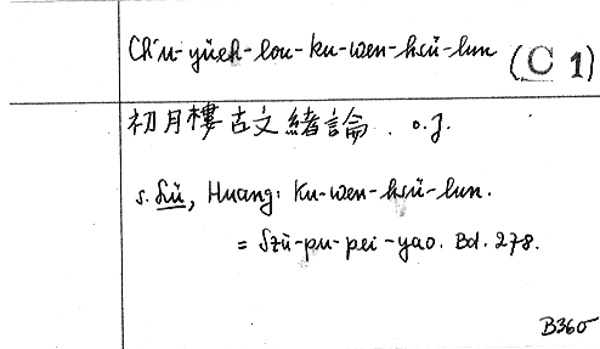 Ch'u-yüeh-lou-ku-wen-hsü-lun (C 1)
初月樓古文緒論. o.J.
s. Lü, Huang: Ku-wen-hsü-lun.
= Szŭ-pu-pei-yao. Bd. 278.
B365